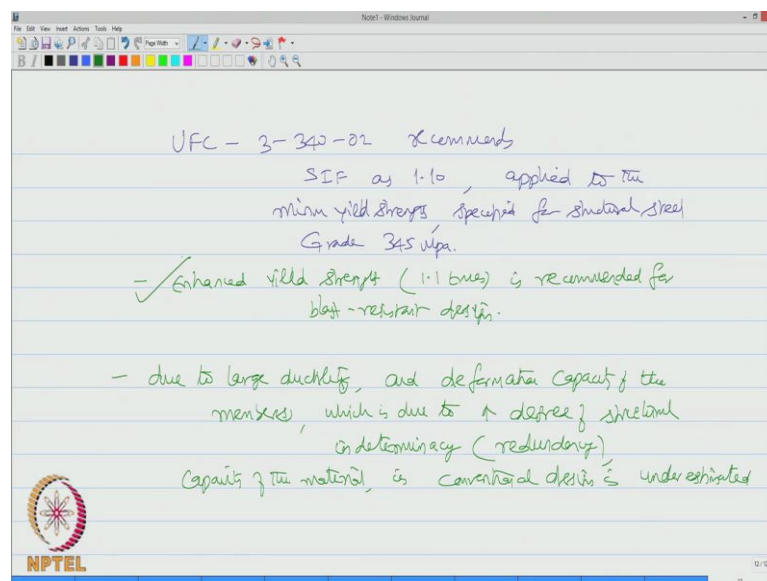 Note1 - Windows Journal
File Edit View Insert Actions Tools Help
Page Width
UFC - 3-340-02 recommends
SIF as 1.10, applied to the
minm yield strength, specified for structural steel
Grade 345 Mpa.
- Enhanced yield strength (1.1 times) is recommended for
blast-resistant design.
- due to large ductility, and deformation capacity of the
members, which is due to ↑ degree of structural
indeterminacy (redundancy),
capacity of the material, in conventional design is underestimated
NPTEL